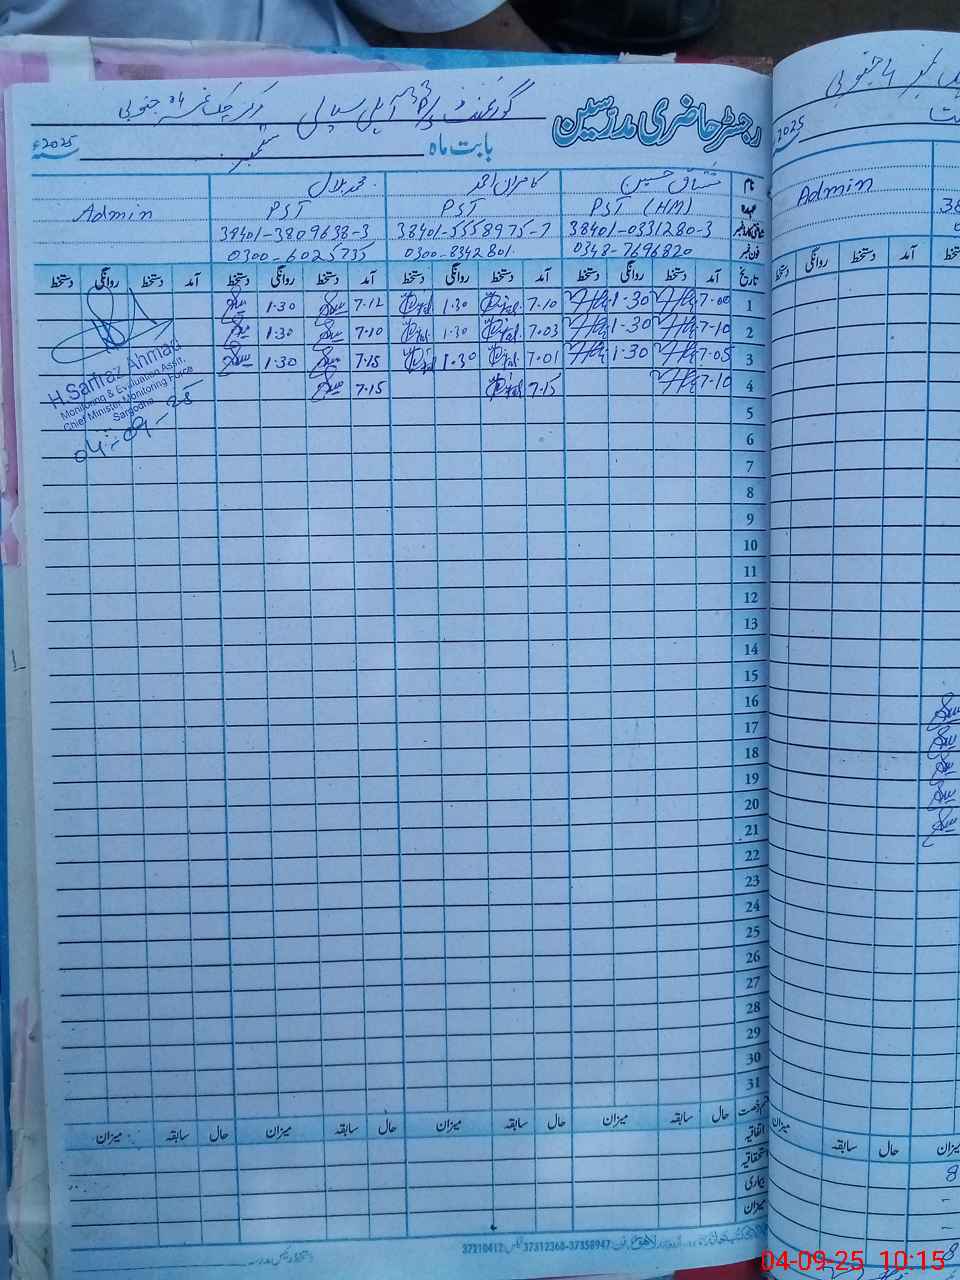 رجسٹر حاضری مدرسین گورنمنٹ پرائمری سکول چک نمبر 4 جنوبی
بابت ماہ ستمبر 2025ء
نام مشتاق حسین کامران احمد محمد بلال
عہدہ PST (HM) PST PST Admin
38401-0331280-3 38401-5558975-7 38401-3809638-3
فون نمبر 0348-7696820 0300-8342801 0300-6025735
تاریخ آمد دستخط روانگی دستخط آمد دستخط روانگی دستخط آمد دستخط روانگی دستخط آمد دستخط روانگی دستخط
1 7.00 1.30 7.10 1.30 7.12 1.30
2 7.10 1.30 7.03 1.30 7.10 1.30
3 7.05 1.30 7.01 1.30 7.15 1.30
4 7.10 7.15 7.15
5
6
7
8
9
10
11
12
13
14
15
16
17
18
19
20
21
22
23
24
25
26
27
28
29
30
31
H. Sarfraz Ahmad
Monitoring & Evaluation Asstt.
Chief Minister Monitoring Force
Sargodha
04-09-25
حال سابقہ میزان حال سابقہ میزان حال سابقہ میزان حال سابقہ میزان
اتفاقیہ
استحقاقیہ
بیماری
میزان
37358947-37312368 37210412
2025
Admin
دستخط روانگی دستخط آمد
میزان
حال سابقہ میزان
8
8
04-09-25 10:15